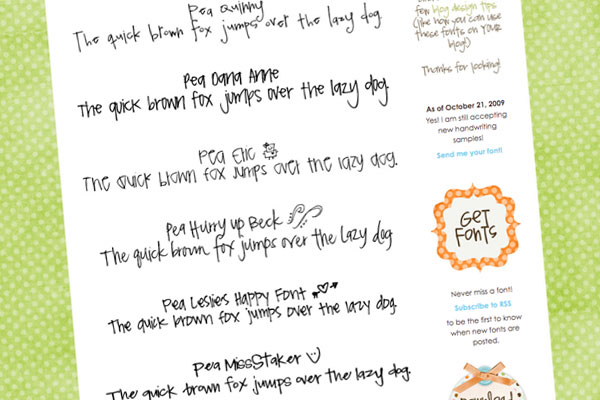 Pea Quinny
The quick brown fox jumps over the lazy dog.
Pea Dana Anne
The quick brown fox jumps over the lazy dog.
Pea Ellie
The quick brown fox jumps over the lazy dog.
Pea Hurry up Beck
The quick brown fox jumps over the lazy dog
Pea Leslies Happy Font
The quick brown fox jumps over the lazy dog.
Pea MissStaker
The quick brown fox jumps over the lazy dog.
few blog design tips
(like how you can use
these fonts on YOUR
blog!)
Thanks for looking!
As of October 21, 2009
Yes! I am still accepting
new handwriting
samples!
Send me your font!
Get
Fonts
Never miss a font!
Subscribe to RSS
to be the first to know
when new fonts are
posted.
Download